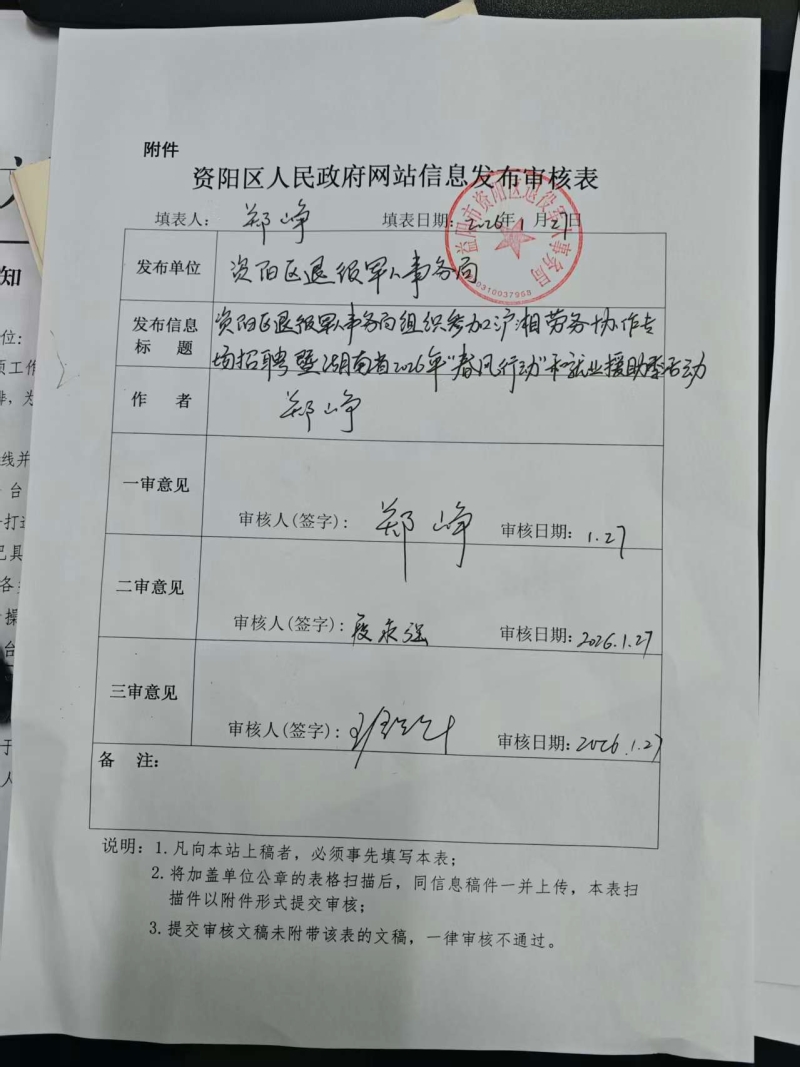 附件
资阳区人民政府网站信息发布审核表
填表人： 郑峥 填表日期：2026年1月27日
益阳市资阳区退役军人事务局
4310037958
发布单位 资阳区退役军人事务局
发布信息标题 资阳区退役军人事务局组织参加沪湘劳务协作专
场招聘暨湖南省2026年“春风行动”和就业援助季活动
作者 郑峥
一审意见
审核人(签字)： 郑峥 审核日期：1.27
二审意见
审核人(签字)： 审核日期：2026.1.27
三审意见
审核人(签字)： 审核日期：2026.1.27
备 注：
说明：1.凡向本站上稿者，必须事先填写本表；
2.将加盖单位公章的表格扫描后，同信息稿件一并上传，本表扫
描件以附件形式提交审核；
3.提交审核文稿未附带该表的文稿，一律审核不通过。
知